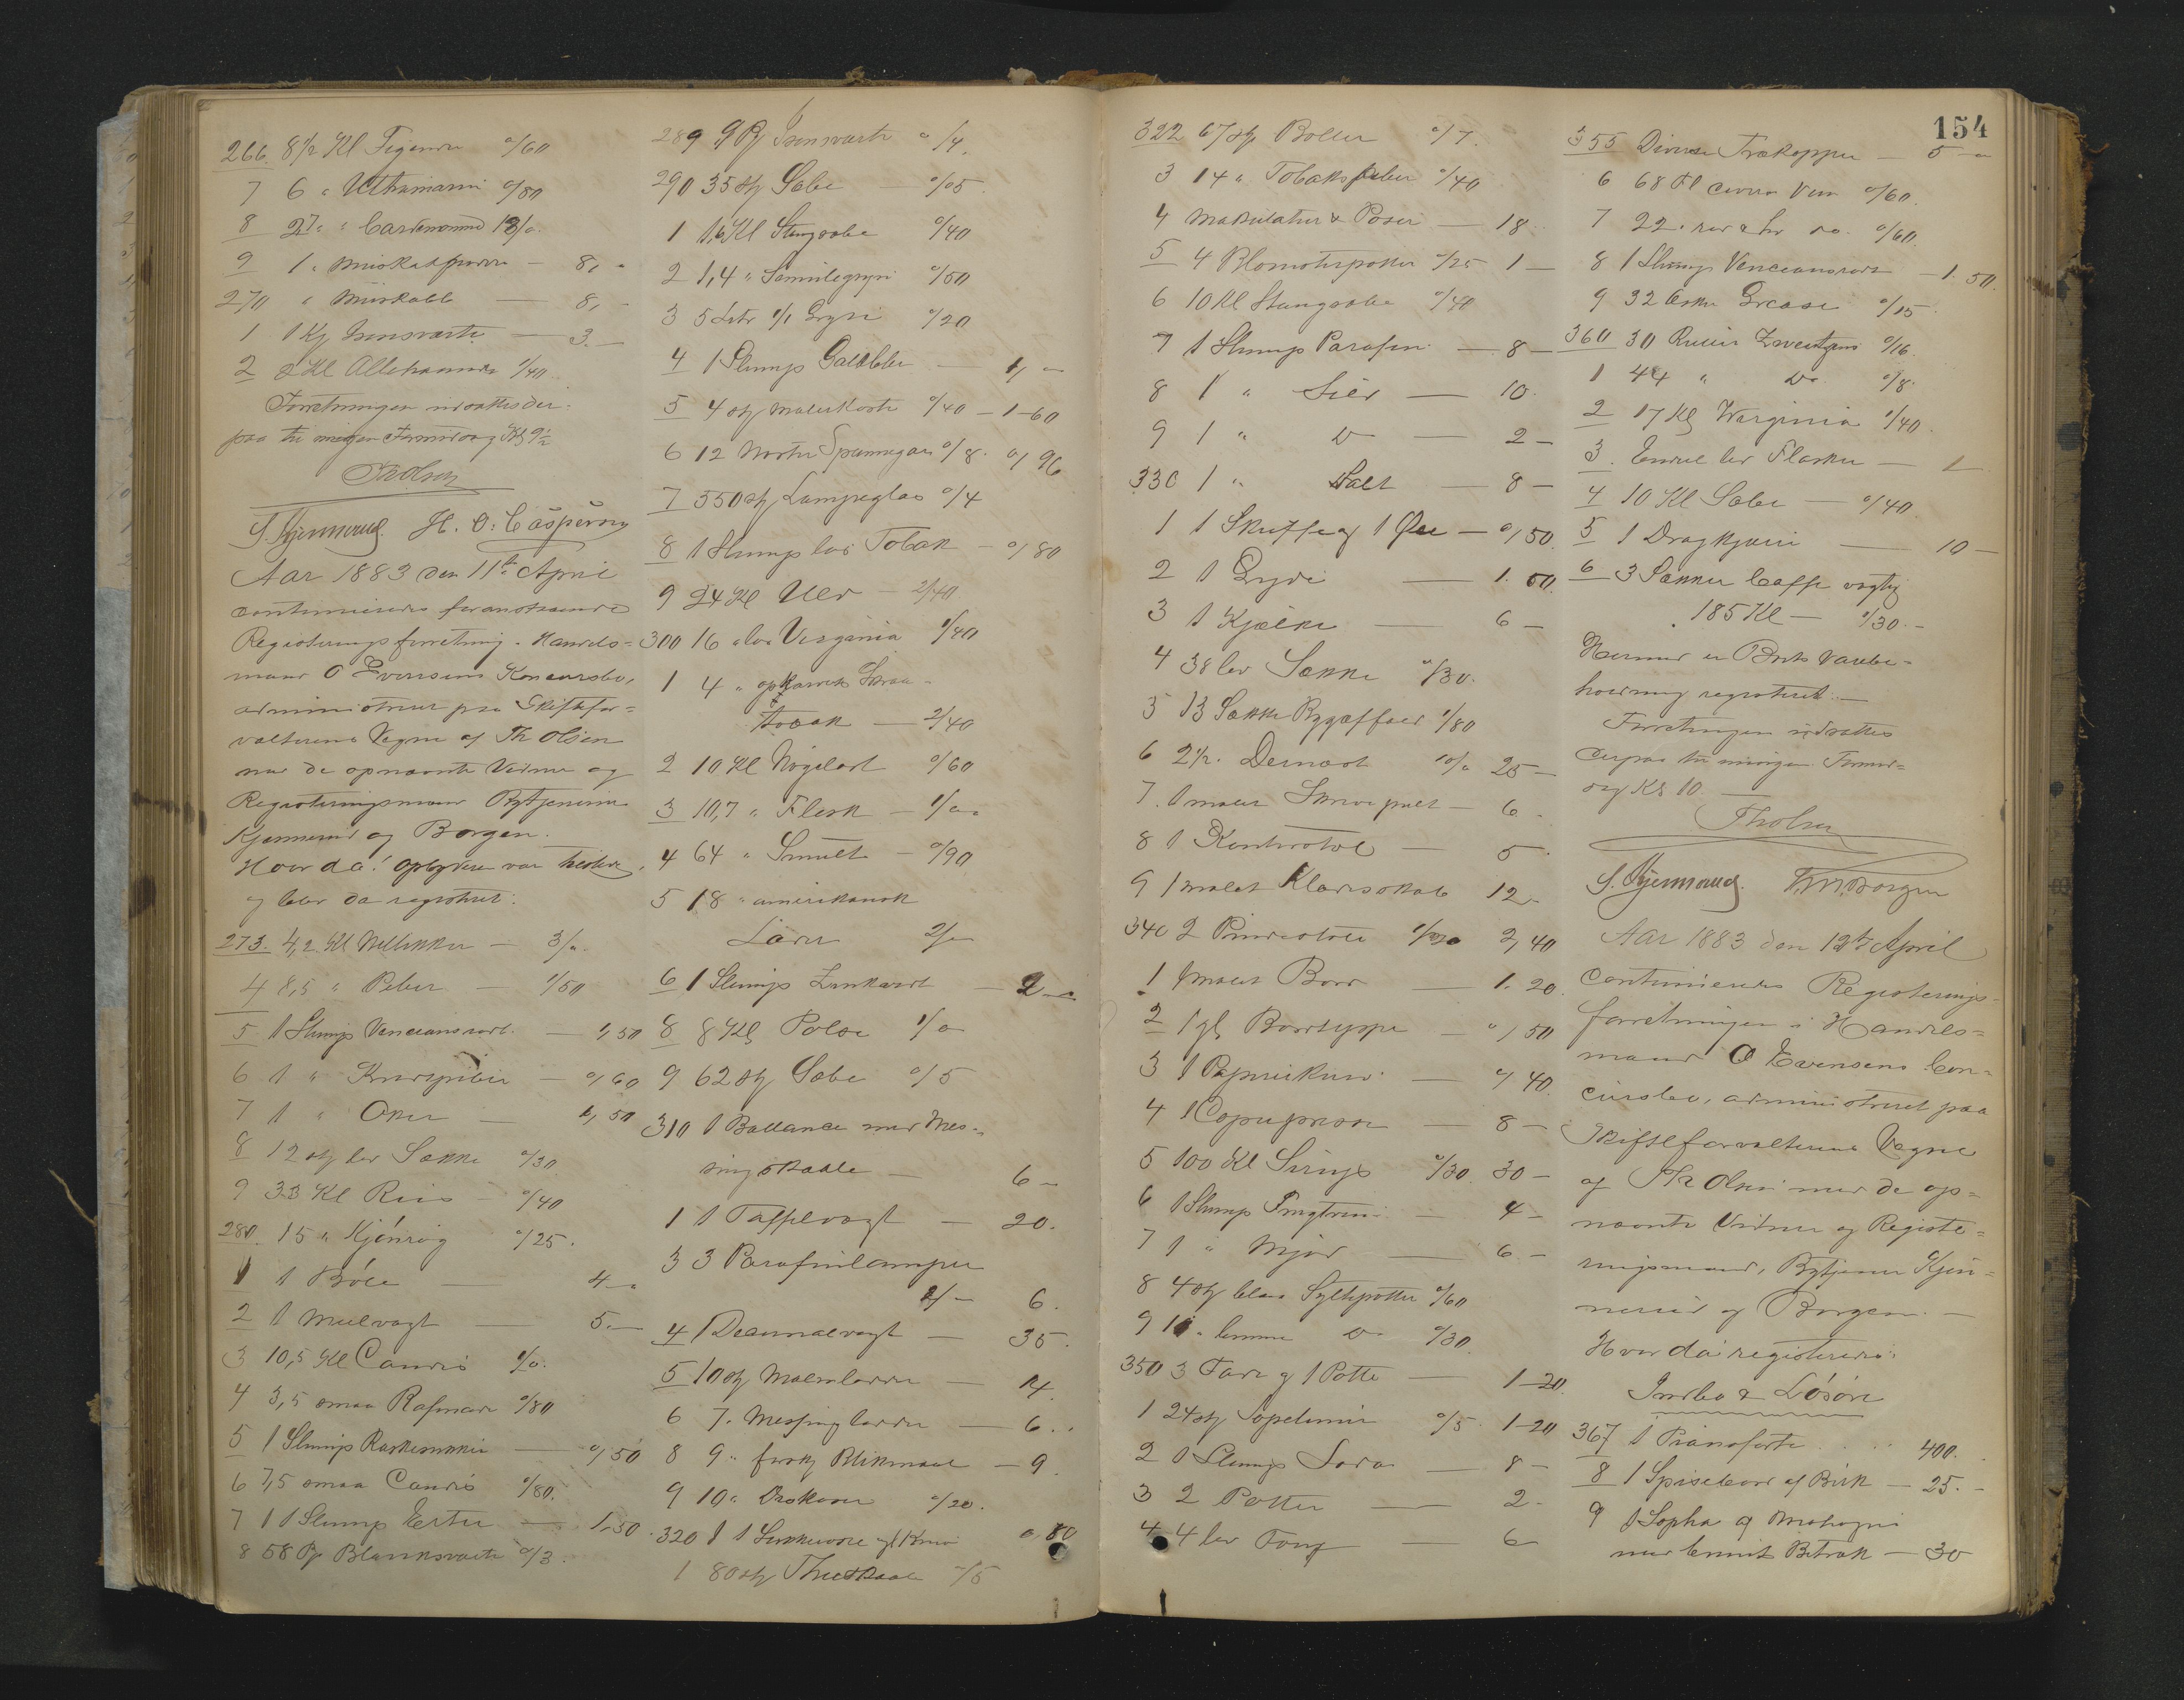 266. 8½ Kl Fegender a/60
7 6 " Ultramarin a/80
8 27 " Cardemomme 13/a.
9 1 " Muskatblomme — 8, "
270 " Muskatt — 8, -
1 1 Kg Brunsværte — 3.—
2 2 Kl Allehaande 1/40
Forretningen udsattes der-
paa til imorgen Formiddag Kl 9½
Th Olsen
S. Kjennerud. H. O. Caspersen
Aar 1883 den 11te April
continueredes foranstaaende
Registreringsforretning i Handels=
mand O Evensens Concursbo,
administreret paa Skiftefor=
valterens Vegne af Th Olsen
med de opnævnte Vidner og
Registreringsmænd Bytjenerne
Kjennerud og Borgen.
Hvor da! Opbyder var tilstede,
og blev da registreret:
273. 4,2 Kl Nellikker — 3/a.
4 8,5 " Peber — 1/50
5 1 Slump Venetiansrødt — 1,50
6 1 " — a, 60
7 1 " Oker — 1,50
8 12 st lær Sække a/30
9 33 Kl Riis — a/40
280. 15 " Kjönrög a/25.
1 1 Bøle — 4—
2 1 Meelvægt — 5.—
3 10,5 Kl Candis 1/a.
4 3,5 smaa Rafinade a/80
5 1 Slump — a, 50
6 7,5 smaa Candis a/80.
7 1 1 Slump Erter — 1,50.
8 58 Pk Blanksværte a/3.
289 9 Pk Brunsværte a/4.
290 35 st Sæbe a/05.
1 1,6 Kl Stangsæbe a/40
2 1,4 " Semulegryn a/50
3 5 Ltr 1/1 Gryn a/20
4 1 Slump Galæbler — 1, —
5 4 st Malerkoste a/40 — 1-60
6 12 Norske a/8. a, 96
7 550 st Lampeglas a/4
8 1 Slump løs Tobak — a, 80
9 24 Kl Uld — 2/40
300 16 " løs Virginia 1/40
1 4 " opskaaret Skraa-
tobak — 2/40
2 10 Kl Nögelost a/60
3 10,7 " Flesk — 1/a.
4 64 " Smult — a/90
5 18 " amerikansk
Læder 2/—
6 1 Slump — 2—
8 8 Kl Pølse 1/a
9 62 st Sæbe a/5
310 1 Ballance med Mes-
singskaale — 6 —
1 1 Taffelvægt — 20.
3 3 Parafinlamper
2/— 6.
4 1 Decimalvægt — 35.
5 10 st Malmlodder — 14.
6 7. Messinglodder — 6..
8 9 " forskj Blikmaal — 9.
9 10 " a/20.
320 1 1 Sukkersax og 1 Kniv a, 80
1 80 st Theeskaale a/5
154
322 67 st Boller a/7.
3 14 " Tobakspiber a/40
4 Makulatur & Poser — 18.
5 4 Blomsterpotter a/25 1 —
6 10 Kl Stangsæbe a/40
7 1 Slump Parafin — 8 —
8 1 " Sild — 10.
9 1 " Do — 2 —
330 1 " Salt — 8 —
1 1 Skuffe og 1 Øxe — a, 50.
2 1 Gryde — 1. 50.
3 1 Kjælke — 6 —
4 38 lær Sække a/30.
5 13 Sække 1/80
6 2½. 10/a 25 —
7. 1 malet Skrivepult — 6 -
8 1 Kontorstol — 5
9 1 malet Klædeskab 12.-
340 2 Pindestole 1/20 2,40
1 1 malet Bord — 1. 20
2 1 gl Bordteppe — a, 50
3 1 Papirskurv — a, 40.
4 1 Copiepresse — 8 —
5 100 Kl Sirup a/30. 30 —
6 1 Slump — 4 —
7 1 " Mjød — 6 —
8 4 st blaa Syltepotter a/60
9 10. brune Do a/30
350 3 Fade og 1 Potte — 1-20.
1 24 st Sopelimer a/5. 1-20
2 1 Slump Soda — 8 —
3 2 Potter — 2 -
4 4 lær Toug — 6
355 Diverse Trækopper — 5 —
6 68 Fl diverse Viin a/60.
7 22 " rød & hv do. a/60.
8 1 Slump Venetiansrødt — 1. 50.
9 32 Æsker Grease a/15.
360 30 Ruller a/16.
1 44 " Do. a/8.
2 17 Kl Warginia 1/40.
3. Endeel lær Flasker — 1
4 10 Kl Sæbe — a/40.
5 1 Dragkjærre — 10 —
6 3 Sække Caffe vægtig
185 Kl — a/30.-
Hermed er Boets Varebe-
holdning registreret.—
Forretningen udsattes
derpaa til imorgen Formid=
dag Kl 10. —
Th Olsen
S. Kjennerud. Borgen
Aar 1883 den 12te April
continueredes Registrerings-
forretningen i Handels=
mand O Evensens Con=
cursbo, administreret paa
Skifteforvalterens Vegne
af Th Olsen med de op=
nævnte Vidner og Registre=
ringsmænd, Bytjener Kjen=
nerud og Borgen. —
Hvor da registreredes:
Indbo & Lösöre
367 1 Pianoforte .... 400.
8 1 Spisebord af Birk — 25.-
9 1 Sopha af Mahogni
med brunt Betræk — 30